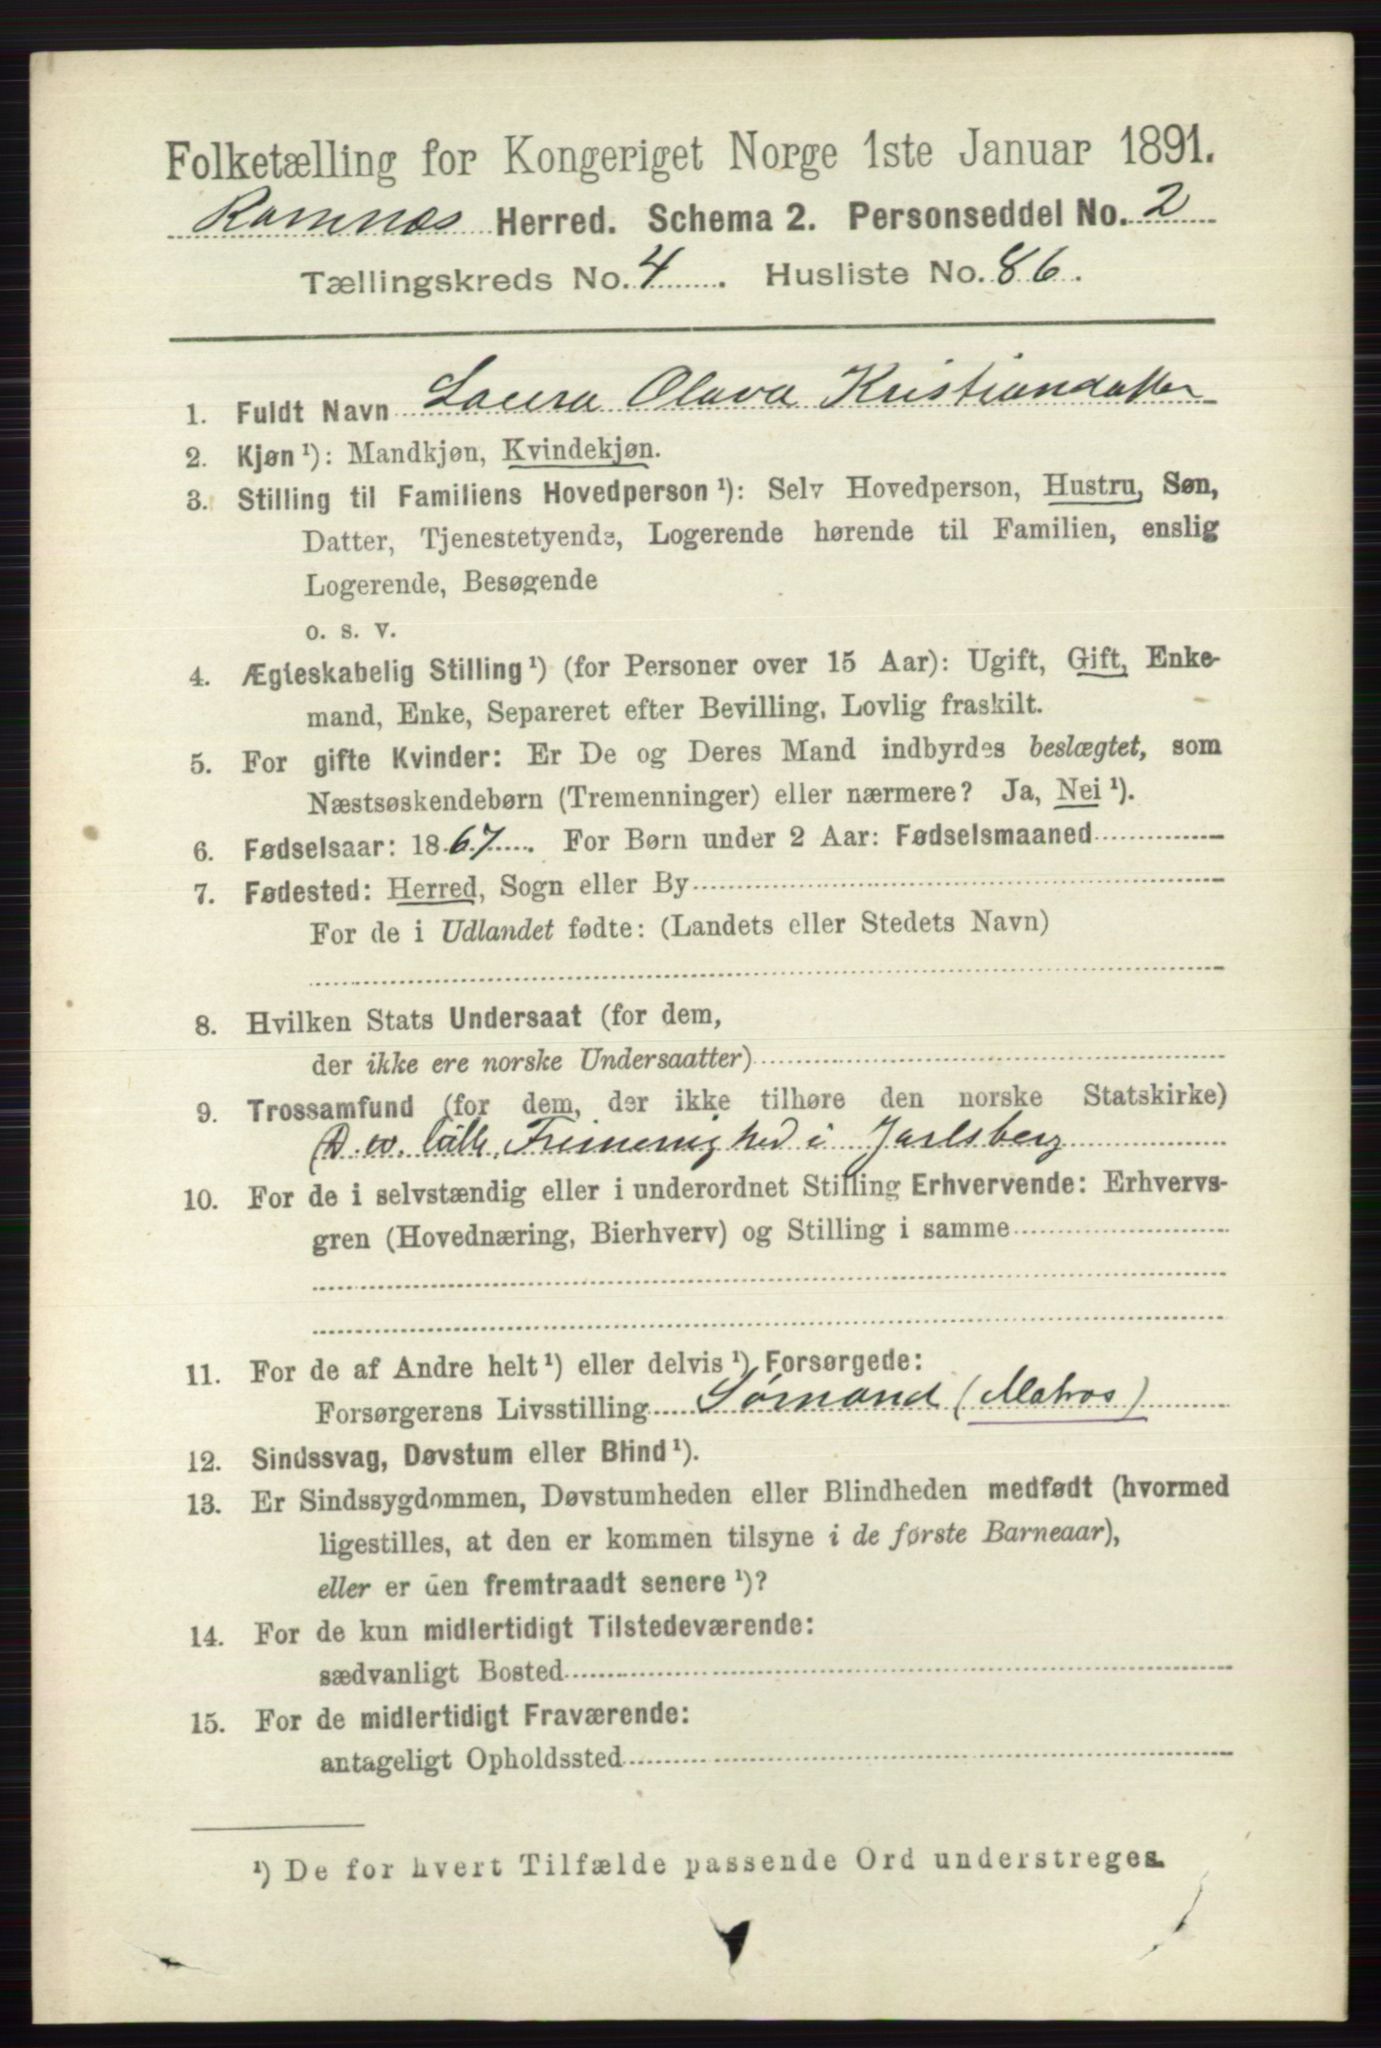 Folketælling for Kongeriget Norge 1ste Januar 1891.
Ramnæs Herred. Schema 2. Personseddel No. 2
Tællingskreds No. 4. Husliste No. 86.
1. Fuldt Navn Laura Olava Kristiandatter
2. Kjøn ¹): Mandkjøn, Kvindekjøn.
3. Stilling til Familiens Hovedperson ¹): Selv Hovedperson, Hustru, Søn,
Datter, Tjenestetyende, Logerende hørende til Familien, enslig
Logerende, Besøgende
o. s. v.
4. Ægteskabelig Stilling ¹) (for Personer over 15 Aar): Ugift, Gift, Enke-
mand, Enke, Separeret efter Bevilling, Lovlig fraskilt.
5. For gifte Kvinder: Er De og Deres Mand indbyrdes beslægtet, som
Næstsøskendebørn (Tremenninger) eller nærmere? Ja, Nei ¹).
6. Fødselsaar: 1867. For Børn under 2 Aar: Fødselsmaaned
7. Fødested: Herred, Sogn eller By
For de i Udlandet fødte: (Landets eller Stedets Navn)
8. Hvilken Stats Undersaat (for dem,
der ikke ere norske Undersaatter)
9. Trossamfund (for dem, der ikke tilhøre den norske Statskirke)
Frimenighed i Jarlsberg
10. For de i selvstændig eller i underordnet Stilling Erhvervende: Erhvervs-
gren (Hovednæring, Bierhverv) og Stilling i samme
11. For de af Andre helt ¹) eller delvis ¹) Forsørgede:
Forsørgerens Livsstilling Sømand (Matros)
12. Sindssvag, Døvstum eller Blind ¹).
13. Er Sindssygdommen, Døvstumheden eller Blindheden medfødt (hvormed
ligestilles, at den er kommen tilsyne i de første Barneaar),
eller er den fremtraadt senere ¹)?
14. For de kun midlertidigt Tilstedeværende:
sædvanligt Bosted
15. For de midlertidigt Fraværende:
antageligt Opholdssted
¹) De for hvert Tilfælde passende Ord understreges.